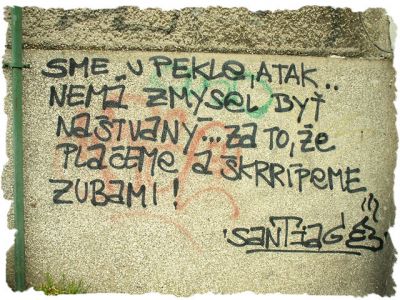 SME U PEKLE, ATAK..
NEMÁ ZMYSEL BYŤ
NAŠTVANÝ... ZA TO, ŽE
PLAČEME A ŠKRRÍPEME
ZUBAMI!
SANTIAGE